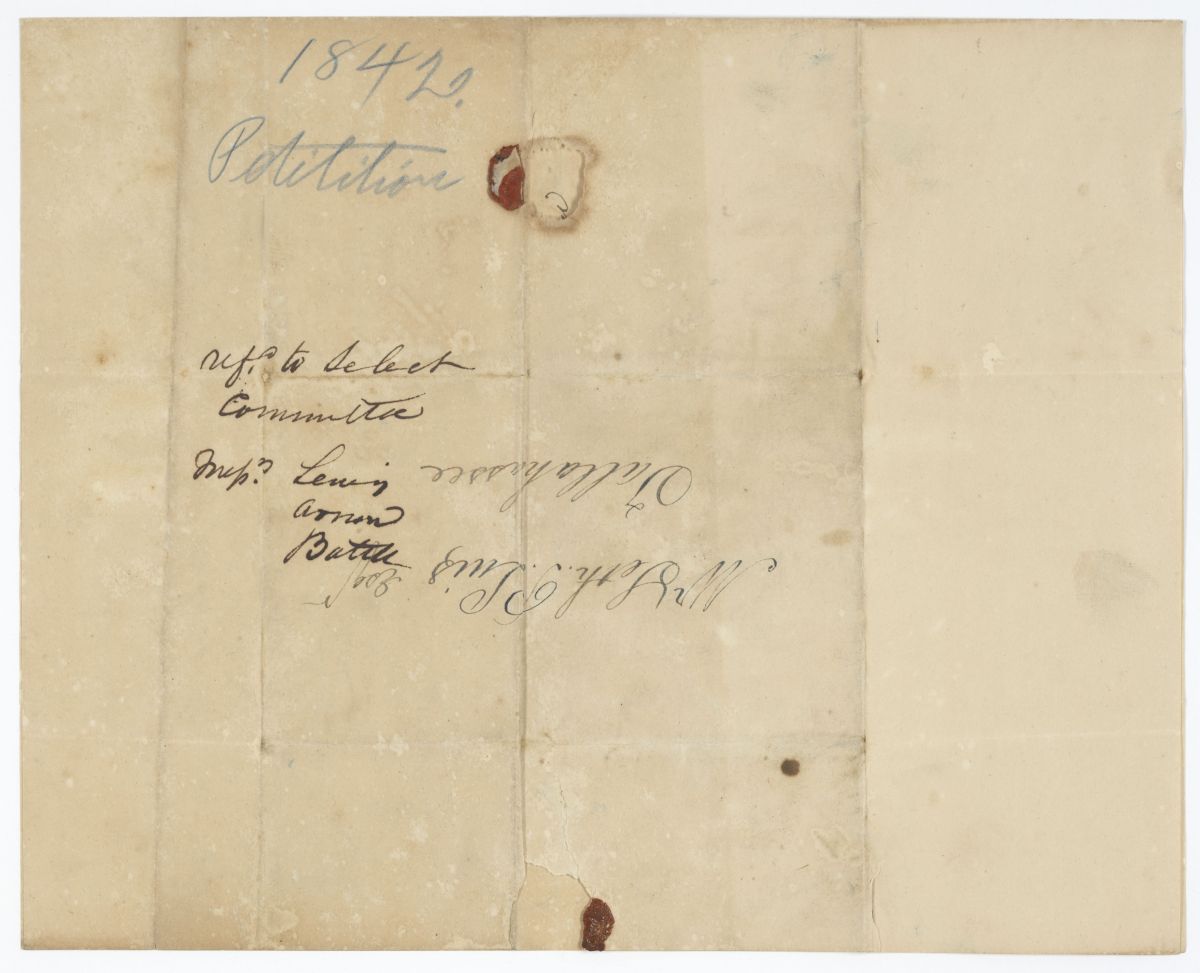 1842.
Petitition
refd. to Select
Committee
Messrs. Lewis
Battle
Mr Seth. P. Lewis Esqr
Tallahassee